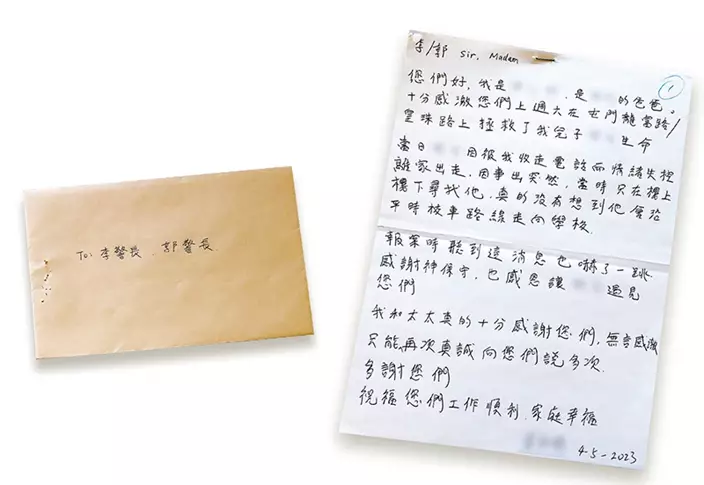 To: 李警長、郭警長
李/郭 sir, Madam
1
您們好,我是 , 是 的爸爸。
十分感激您們上週六在屯門龍富路/
皇珠路上拯救了我兒子 生命
當日 因被我收走電話而情緒失控
離家出走,因事出突然,當時只在樓上
樓下尋找他,真的沒有想到他會沿
平時校車路線走向學校.
報案時聽到這消息也嚇了一跳
感謝神保守,也感恩讓 遇見
您們
我和太太真的十分感謝您們,無言感激
只能再次真誠向您們說多次.
多謝您們
祝福您們工作順利.家庭幸福
4-5-2023